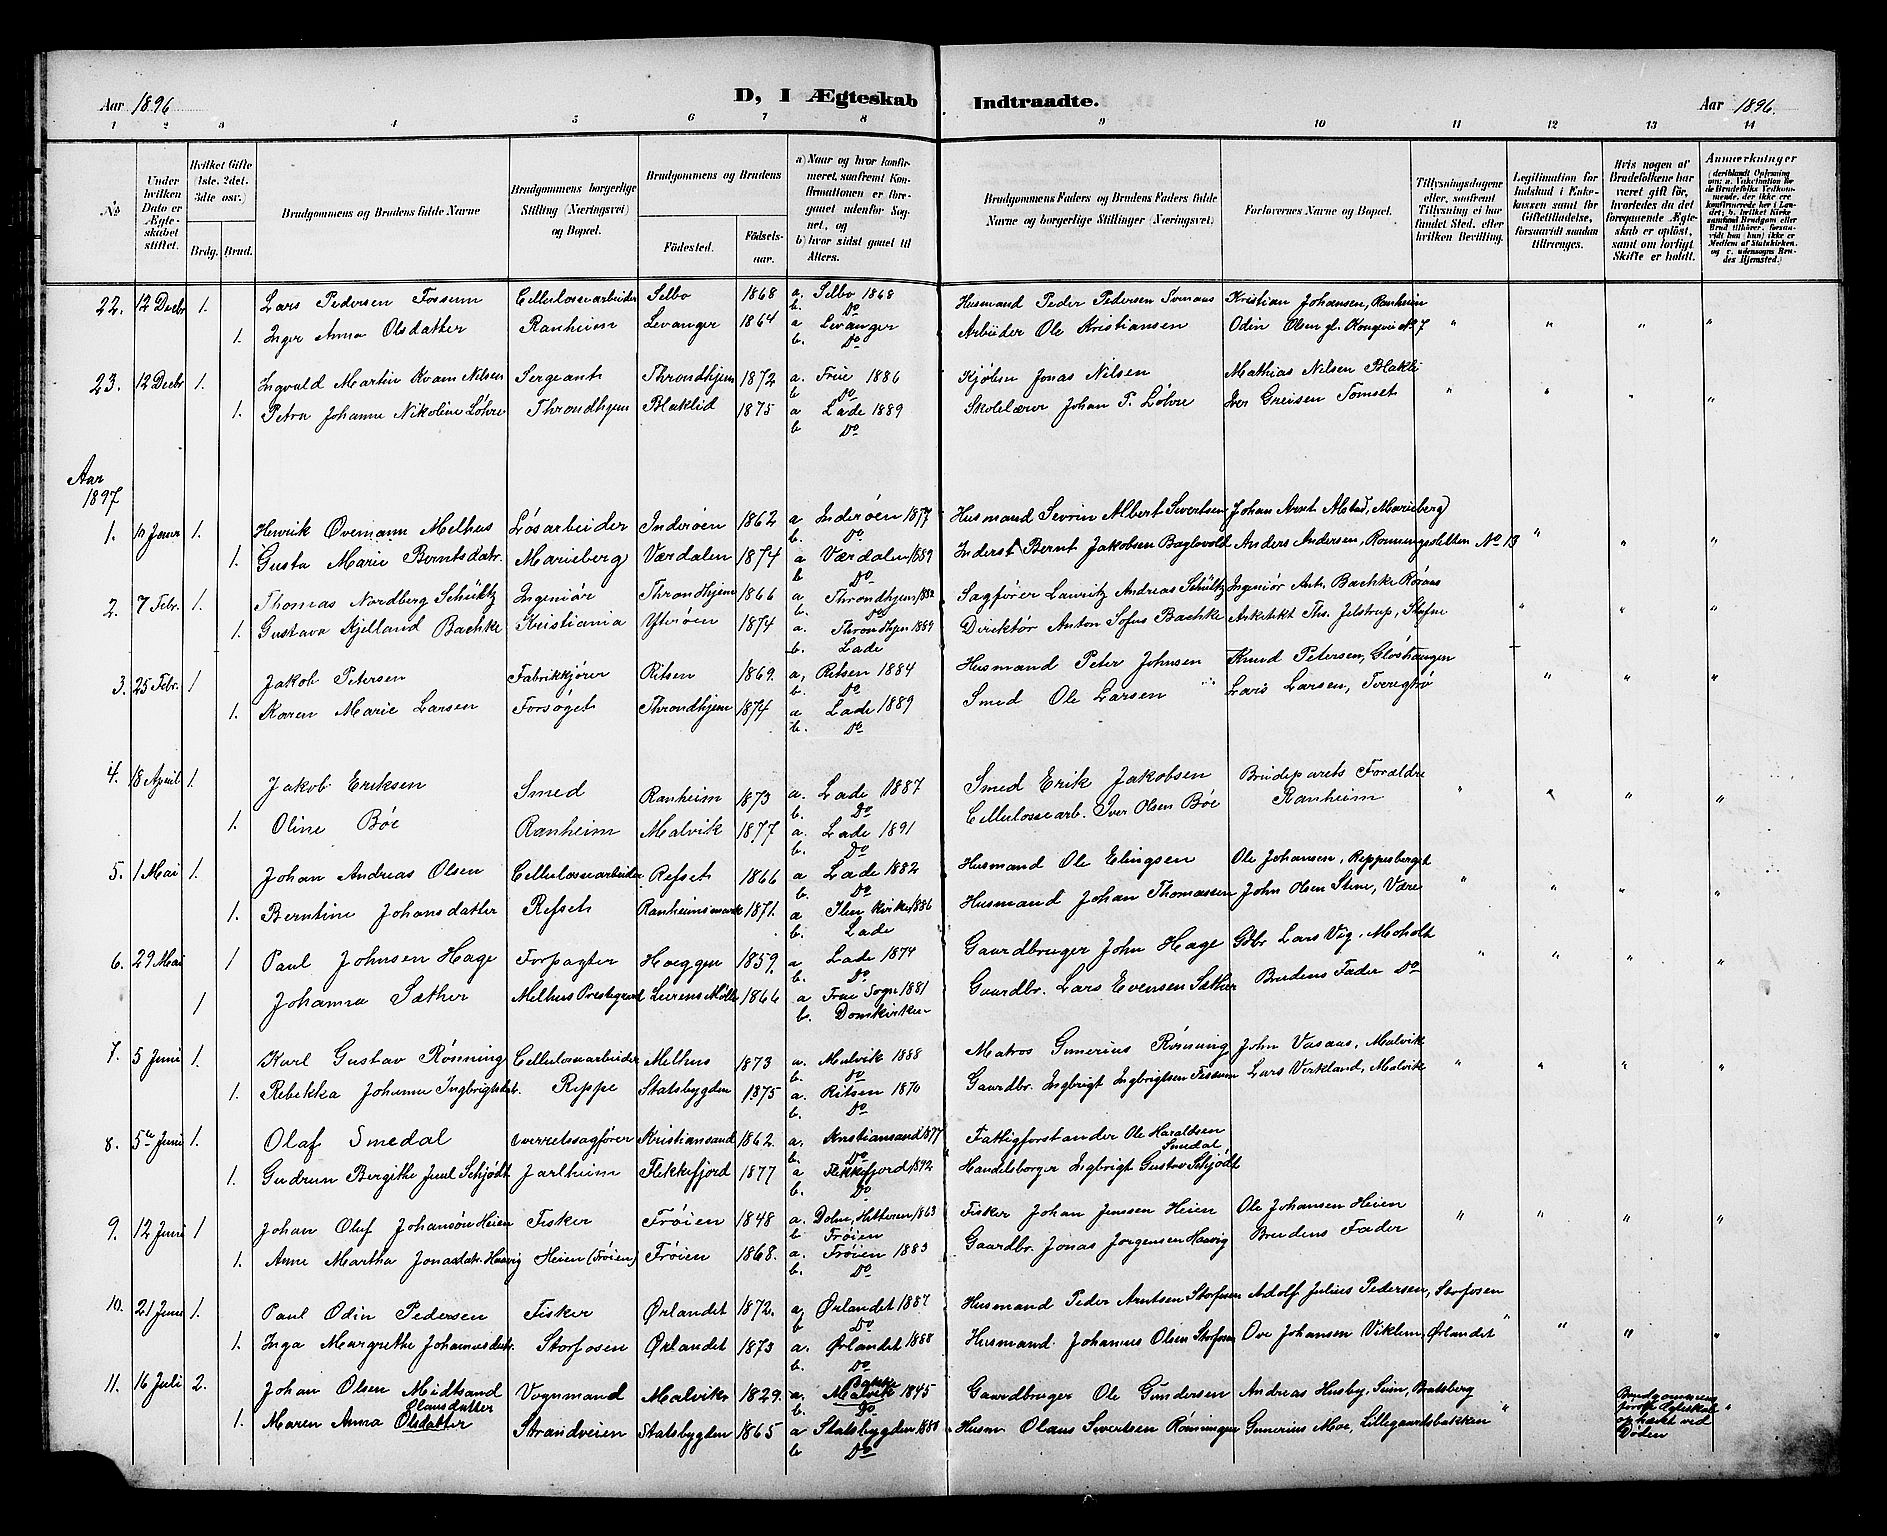 Aar 1896
D, I Ægteskab Indtraadte.
Aar 1896.
1 2 3 4 5 6 7 8 9 10 11 12 13 14
No
Under hvilken Dato er Ægteskabet stiftet.
Hvilket Gifte (1ste, 2det, 3die osv.)
Brdg. Brud.
Brudgommens og Brudens fulde Navne
Brudgommens borgerlige Stilling (Næringsvei) og Bopæl.
Brudgommens og Brudens
Födested. Födselsaar.
a) Naar og hvor konfirmeret, saafremt Konfirmationen er foregaaet udenfor Sognet, og
b) hvor sidst gaaet til Alters.
Brudgommens Faders og Brudens Faders fulde Navne og borgerlige Stillinger (Næringsvei).
Forlovernes Navne og Bopæl.
Tillysningsdagene eller, saafremt Tillysning ei har fundet Sted, efter hvilken Bevilling.
Legitimation for Indskud i Enkekassen samt for Giftetilladelse, forsaavidt saadan tiltrænges.
Hvis nogen af Brudefolkene har været gift för, hvorledes da det foregaaende Ægteskab er oplöst, samt om lovligt Skifte er holdt.
Anmærkninger
22. 12 Decbr 1. Lars Pedersen Fossum Cellulosearbeider Selbo 1868 a. Selbo 1868 Husmand Peder Pedersen Kristian Johansen, Ranheim
b. Do
1. Inger Anna Olsdatter Ranheim Levanger 1864 a Levanger Arbeider Ole Kristiansen Odin Olsen gl. Kongevei No 7 " " " "
b. Do
23. 12 Decbr 1. Ingvald Martin Kvam Nilsen Sergeant Throndhjem 1872 a. Frue 1886 Jonas Nilsen Mathias Nilsen Blakli
b Do
1. Petra Johanne Nikoline Løhre Throndhjem Blaklid 1875 a Lade 1889 Skolelærer Johan P. Løhre Iver Greisen Tomset " " " "
b Do
Aar
1897
1. Janr 1. Henrik Ovemann Melhus Løsarbeider Inderøen 1862 a Inderøen 1877 Husmand Sevrin Albert Sivertsen Johan Arnt Marieberg
b. Do
1. Gusta Marie Berntsdatr. Marieberg Værdalen 1874 a Værdalen 1889 Inderst Bernt Jakobsen Anders Andersen, No 13 " " "
b Do
2. 7 Febr. 1. Thomas Nordberg Schültz Ingeniør Throndhjem 1866 a Throndhjem 1882 Sagfører Lauritz Andreas Schültz Ingeniør Ant. Bachke Røraas
b. Do
1. Gustava Kjelland Bachke Kristiania Ytterøen 1874 a. Throndhjem 1889 Direktør Anton Sofus Bachke Arkitekt Ths. Jelstrup, Stafne " " "
b. Lade
3. 25 Febr. 1 Jakob Petersen Fabrikkjører Ritsen 1869. a, Ritsen 1884 Husmand Peter Johnsen Knud Petersen, Gløshaugen
b. Do
1. Karen Marie Larsen Forsøget Throndhjem 1874 a Lade 1889 Smed Ole Larsen Lars Larsen, " " "
b. Do
4. 18 April 1. Jakob Eriksen Smed Ranheim 1873 a. Lade 1887 Smed Erik Jakobsen Brudeparets Forældre
b. Do
1. Oline Bøe Ranheim Malvik 1877 a. Lade 1891 Cellulosearb. Iver Olsen Bøe Ranheim " " " "
b. Do
5. 1 Mai 1. Johan Andreas Olsen Cellulosearbeider Refset 1866 a Lade 1882 Husmand Ole Elingsen Ole Johansen, Reppesberget
b. Do
1. Berntine Johansdatter Refset Ranheimsmark 1871. a Ilen Kirke 1886 Husmand Johan Thomassen John Olsen Stene, Være " " " "
b. Lade
6. 29 Mai 1 Paul Johnsen Hage Forpagter Hoeggen 1859. a Lade 1874 Gaardbruger John Hage Gdbr Lars Vig, Moholt " " " "
b. Do
1 Johanna Sæther Melhus Prestegaard Leirens Mølle 1866 a Frue Sogn 1881 Gaardbr. Lars Evensen Sæther Brudens Fader Do
b. Domkirken
7. 5 Juni 1. Karl Gustav Rønning Cellulosearbeider Melhus 1873 a. Malvik 1888 Matros Gunerius Rønning John Vasaas, Malvik
b. Do
1. Rebekka Johanne Ingbrigtsdat. Reppe Statsbygden 1875 a. Ritsen 1870 Gaardbr. Ingbrigt Ingbrigtsen Fissum Lars Virkland, Malvik " " " "
b. Do
8. 5te Juni 1. Olaf Smedal Overretssagfører Kristiansand 1862. a. Kristiansand 1877 Fattigforstander Ole Haraldsen Smedal
b. Do
1. Gudrun Bergithe Juul Schjødt Jarlheim Flekkefjord 1877 a Flekkefjord 1892 Handelsborger Ingbrigt Gustav Schjødt
b. Do
9. 12 Juni 1 Johan Oluf Johansøn Heien Fisker Frøien 1848 a. Dolm, Hitteren 1863 Fisker Johan Jenssen Heien Ole Johansen Heien
b Frøien
1. Anne Martha Jonasdatr. Haavig Heien (Frøien) Frøien 1868. a. Frøien 1883 Gaardbr. Jonas Jørgensen Haavig Brudens Fader " " " "
b. Do
10. 21 Juni 1. Paul Odin Pedersen Fisker Ørlandet 1872. a, Ørlandet 1887 Husmand Peder Arntsen Storfosen Adolf Julius Pedersen, Storfosen
b Do
1. Inga Margrethe Johannesdatr. Storfosen Ørlandet 1873 a. Ørlandet 1888 Husmand Johannes Olsen Storfosen Ove Johansen Viklem, Ørlandet " " " "
b. Do
11. 16 Juli 2. Johan Olsen Midtsand Vognmand Malvik 1829. a. Malvik Bakke 1845 Gaardbruger Ole Gundersen Andreas Husby, Bratsberg Brudgommens første Ægteskab ophævet ved Døden
b. Do
1. Maren Anna Olsdatter Olausdatter Strandveien Statsbygden 1865 a Statsbygden 1880 Husm Olaus Sivertsen Rønningen Gunerius Moe, Lillegaardsbakken " "
b Do